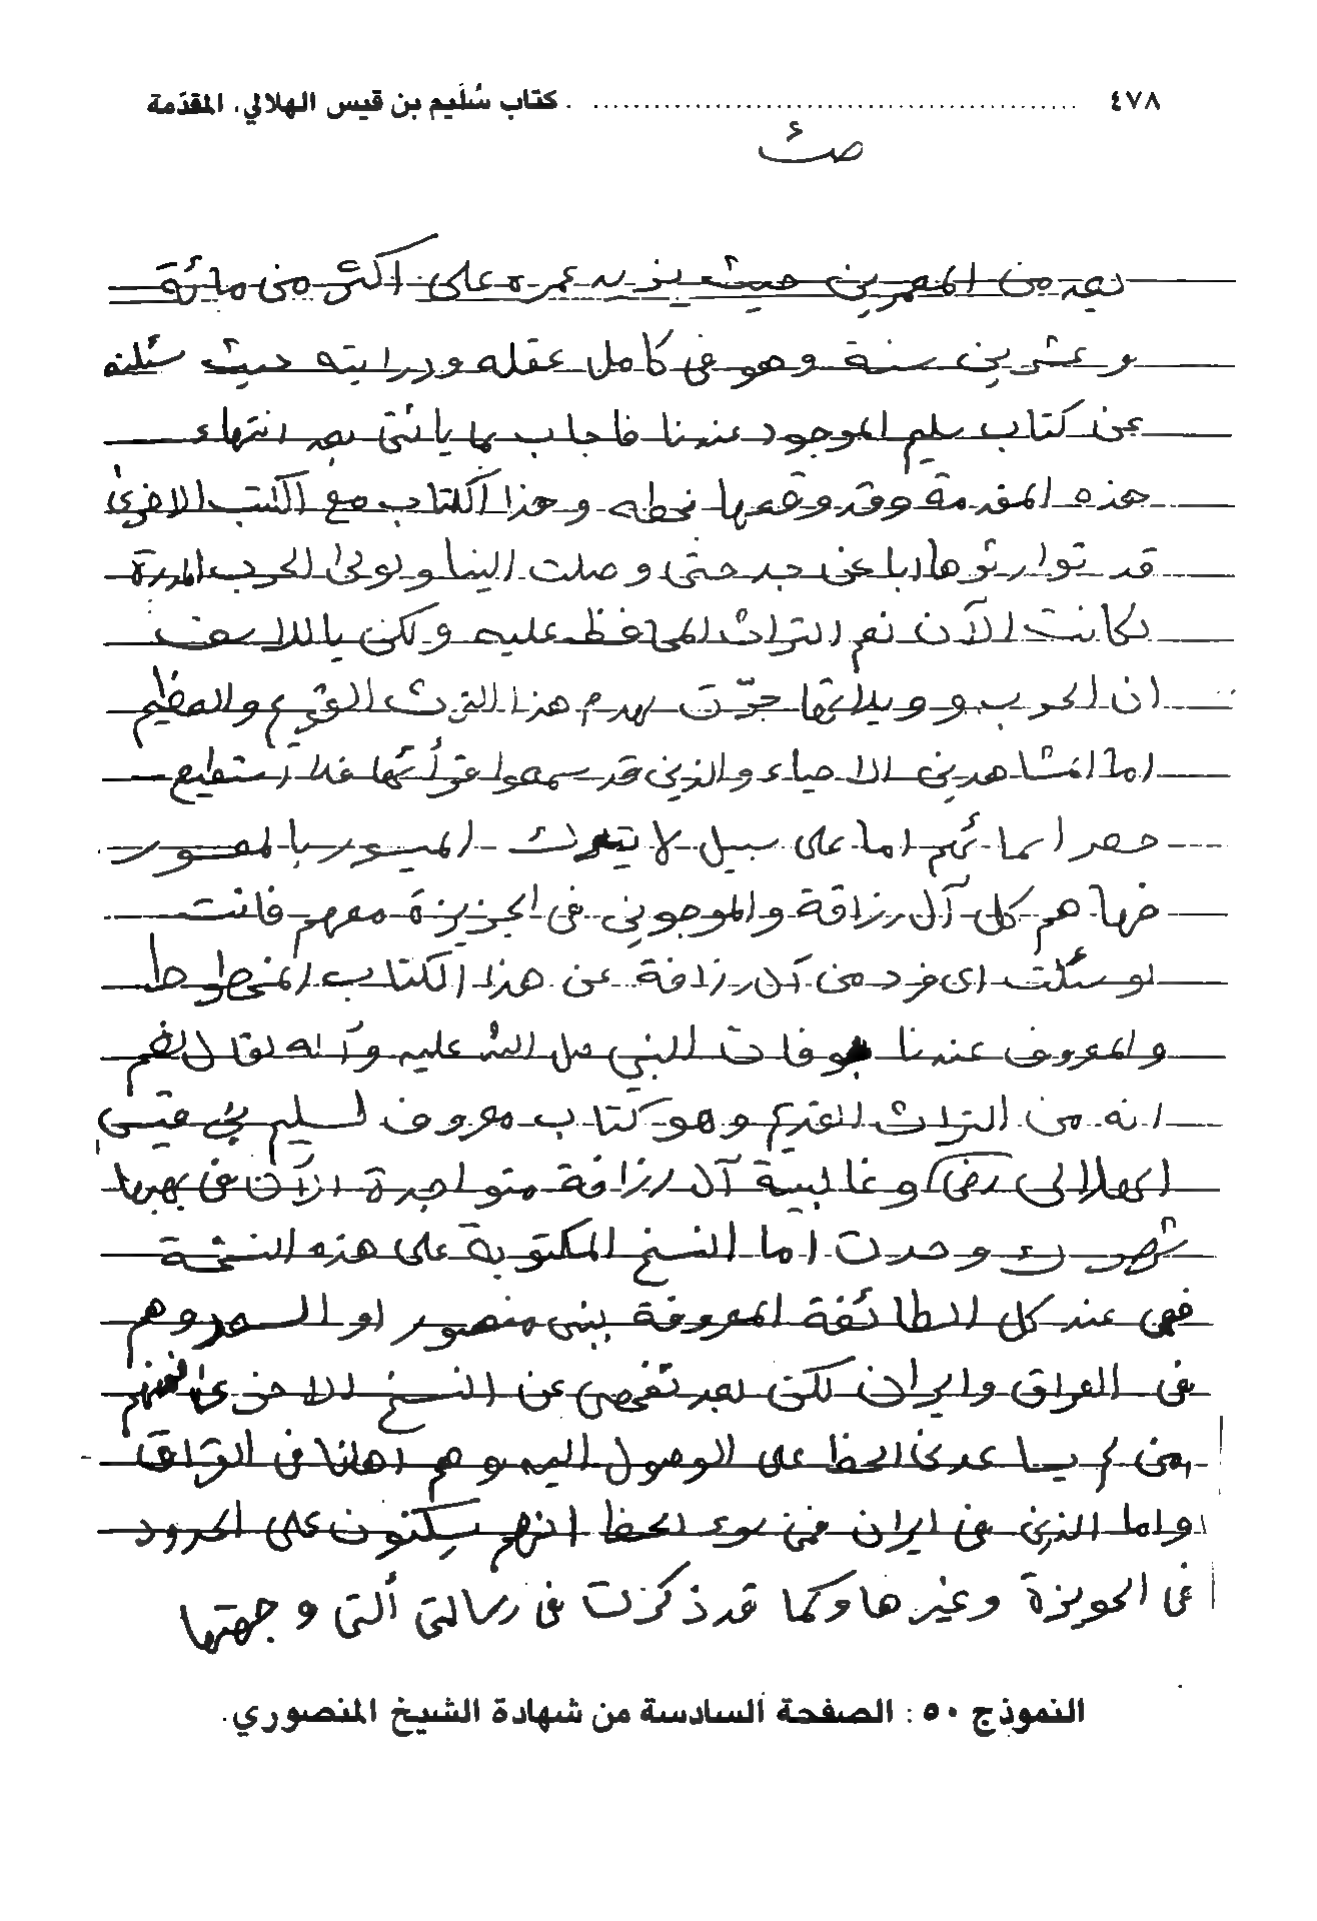 ٤٧٨ ........ كتاب سُلَيم بن قيس الهلالي، المقدّمة
يعد من المعمرين حيث يزيد عمره على اكثر من مائة
و عشرين سنة وهو في كامل عقله ودرايته حيث سئلته
عن كتاب سليم الموجود عندنا فاجاب بما يأتي بعد انتهاء
هذه المقدمة وقد وقعها بخطه وهذا الكتاب مع الكتب الاخرى
قد توارثوها ابا عن جد حتى وصلت الينا ولولا الحرب المدمرة
لكانت الآن نعم التراث المحافظ عليه ولكن ياللاسف
ان الحرب وويلاتها جرّت بهدم هذا التراث القديم والعظيم
اما المشاهدين الاحياء والذين قد سمعوا قرأتها فلا استطيع
حصر اسمائهم اما على سبيل لا يترك الميسور بالمعسور
فها هم كل آل رزاقة والموجوين في الجزيزة معهم فانت
لو سئلت اي فرد من آل رزاقة عن هذا الكتاب المخطوط
والمعروف عندنا بوفات النبي صل الله عليه وآله لقال نعم
انه من التراث القديم وهو كتاب معروف لسليم بن قيس
الهلالي رض وغالبية آل رزاقة متواجدة الآن في
وحدت اما النسخ المكتوبة على هذه النسخة
فهي عند كل الطائفة المعروفة ببني منصور او السدر وهم
في العراق وايران لكن بعد تفحصي عن النسخ الاخرى
من لم يساعدني الحظ على الوصول اليه وهم اهلنا في العراق
واما الذين في ايران فمن سوء الحظ انهم يسكنون على الحدود
في الحويزة وغيرها وكما قد ذكرت في رسالتي التي وجهتها
النموذج ٥٠ : الصفحة السادسة من شهادة الشيخ المنصوري.